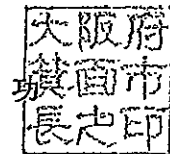 功
大阪府
箕面市
長之印